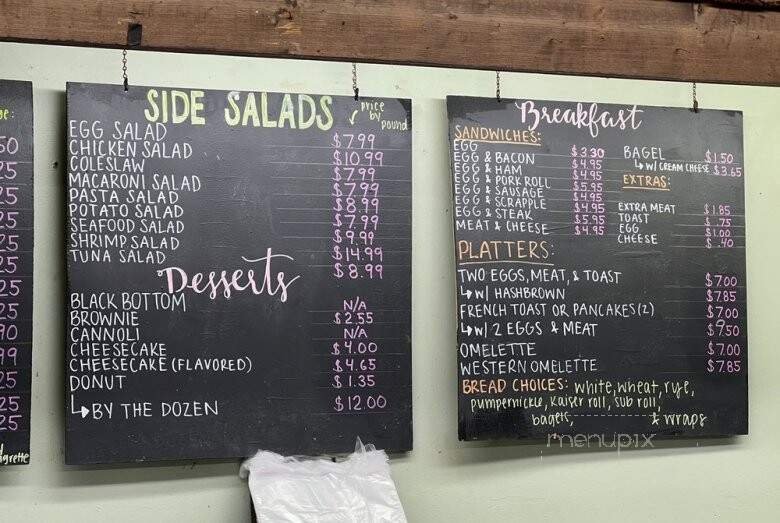 e:
50
25
25
25
25
25
90
99
25
25
25
grette
SIDE SALADS ✓ price by pound
EGG SALAD $7.99
CHICKEN SALAD $10.99
COLESLAW $7.99
MACARONI SALAD $7.99
PASTA SALAD $8.99
POTATO SALAD $7.99
SEAFOOD SALAD $9.99
SHRIMP SALAD $14.99
TUNA SALAD $8.99
Desserts
BLACK BOTTOM N/A
BROWNIE $2.55
CANNOLI N/A
CHEESECAKE $4.00
CHEESECAKE (FLAVORED) $4.65
DONUT $1.35
↳BY THE DOZEN $12.00
Breakfast
SANDWICHES:
EGG $3.30
EGG & BACON $4.95
EGG & HAM $4.95
EGG & PORK ROLL $4.95
EGG & SAUSAGE $5.95
EGG & SCRAPPLE $4.95
EGG & STEAK $5.95
MEAT & CHEESE $4.95
BAGEL $1.50
↳W/ CREAM CHEESE $3.65
EXTRAS:
EXTRA MEAT $1.85
TOAST $.75
EGG $1.00
CHEESE $.40
PLATTERS:
TWO EGGS, MEAT, & TOAST $7.00
↳W/ HASHBROWN $7.85
FRENCH TOAST OR PANCAKES (2) $7.00
↳W/ 2 EGGS & MEAT $9.50
OMELETTE $7.00
WESTERN OMELETTE $7.85
BREAD CHOICES: white, wheat, rye,
pumpernickle, kaiser roll, sub roll,
bagels, & wraps
menupix